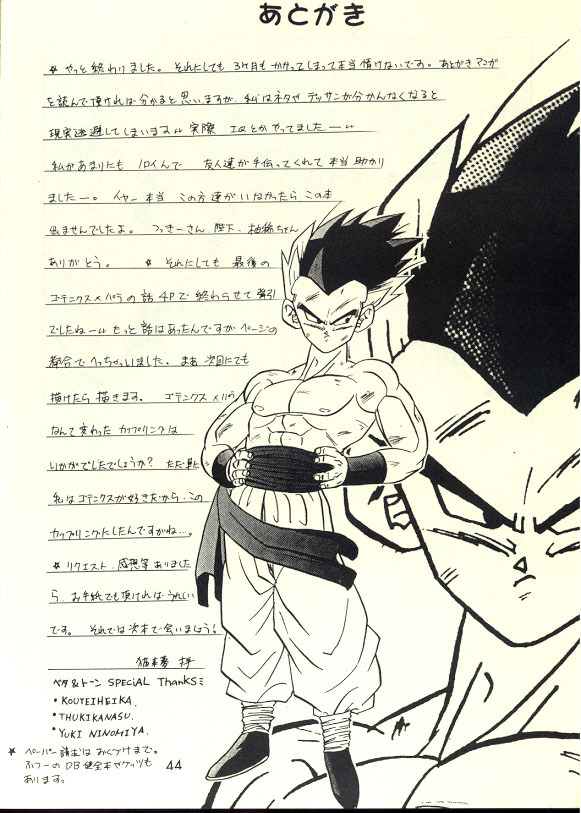 あとがき
☆ やっと終わりました。それにしても3ヶ月もかかってしまって本当情けないです。あとがきマンガ
を読んで頂ければ分かると思いますが、私はネタやデッサンが分かんなくなると
現実逃避してしまいます 実際 IQとかやってましたー
私があまりにも ノロイんで 友人達が手伝ってくれて本当 助かり
ましたー。イヤー本当 この方達がいなかったら この本
出ませんでしたよ。つっきーさん、陛下、柚稀ちゃん
ありがとう。 ☆ それにしても 最後の
ゴテンクス×パラの話4Pで終わらせて強引
でしたねー もっと話はあったんですがページの
都合でへっちゃいました。まあ 次回にでも
描けたら描きます。 ゴテンクス×パラ
なんて変わった カップリングは
いかがでしたでしょうか? ただ単に
私はゴテンクスが好きだから、この
カップリングにしたんですがね…。
☆ リクエスト、感想等ありました
ら、お手紙でも頂ければ うれしい
です。 それでは次本で会いましょう!
ベタ&トーン SPECIAL THANKS
• KOUTEIHEIKA.
• THUKIKANASU.
• YUKI NINOMIYA.
☆ ペーパー請求はおくづけまで。
ふつーのDB健全本やグッツも
あります。
44